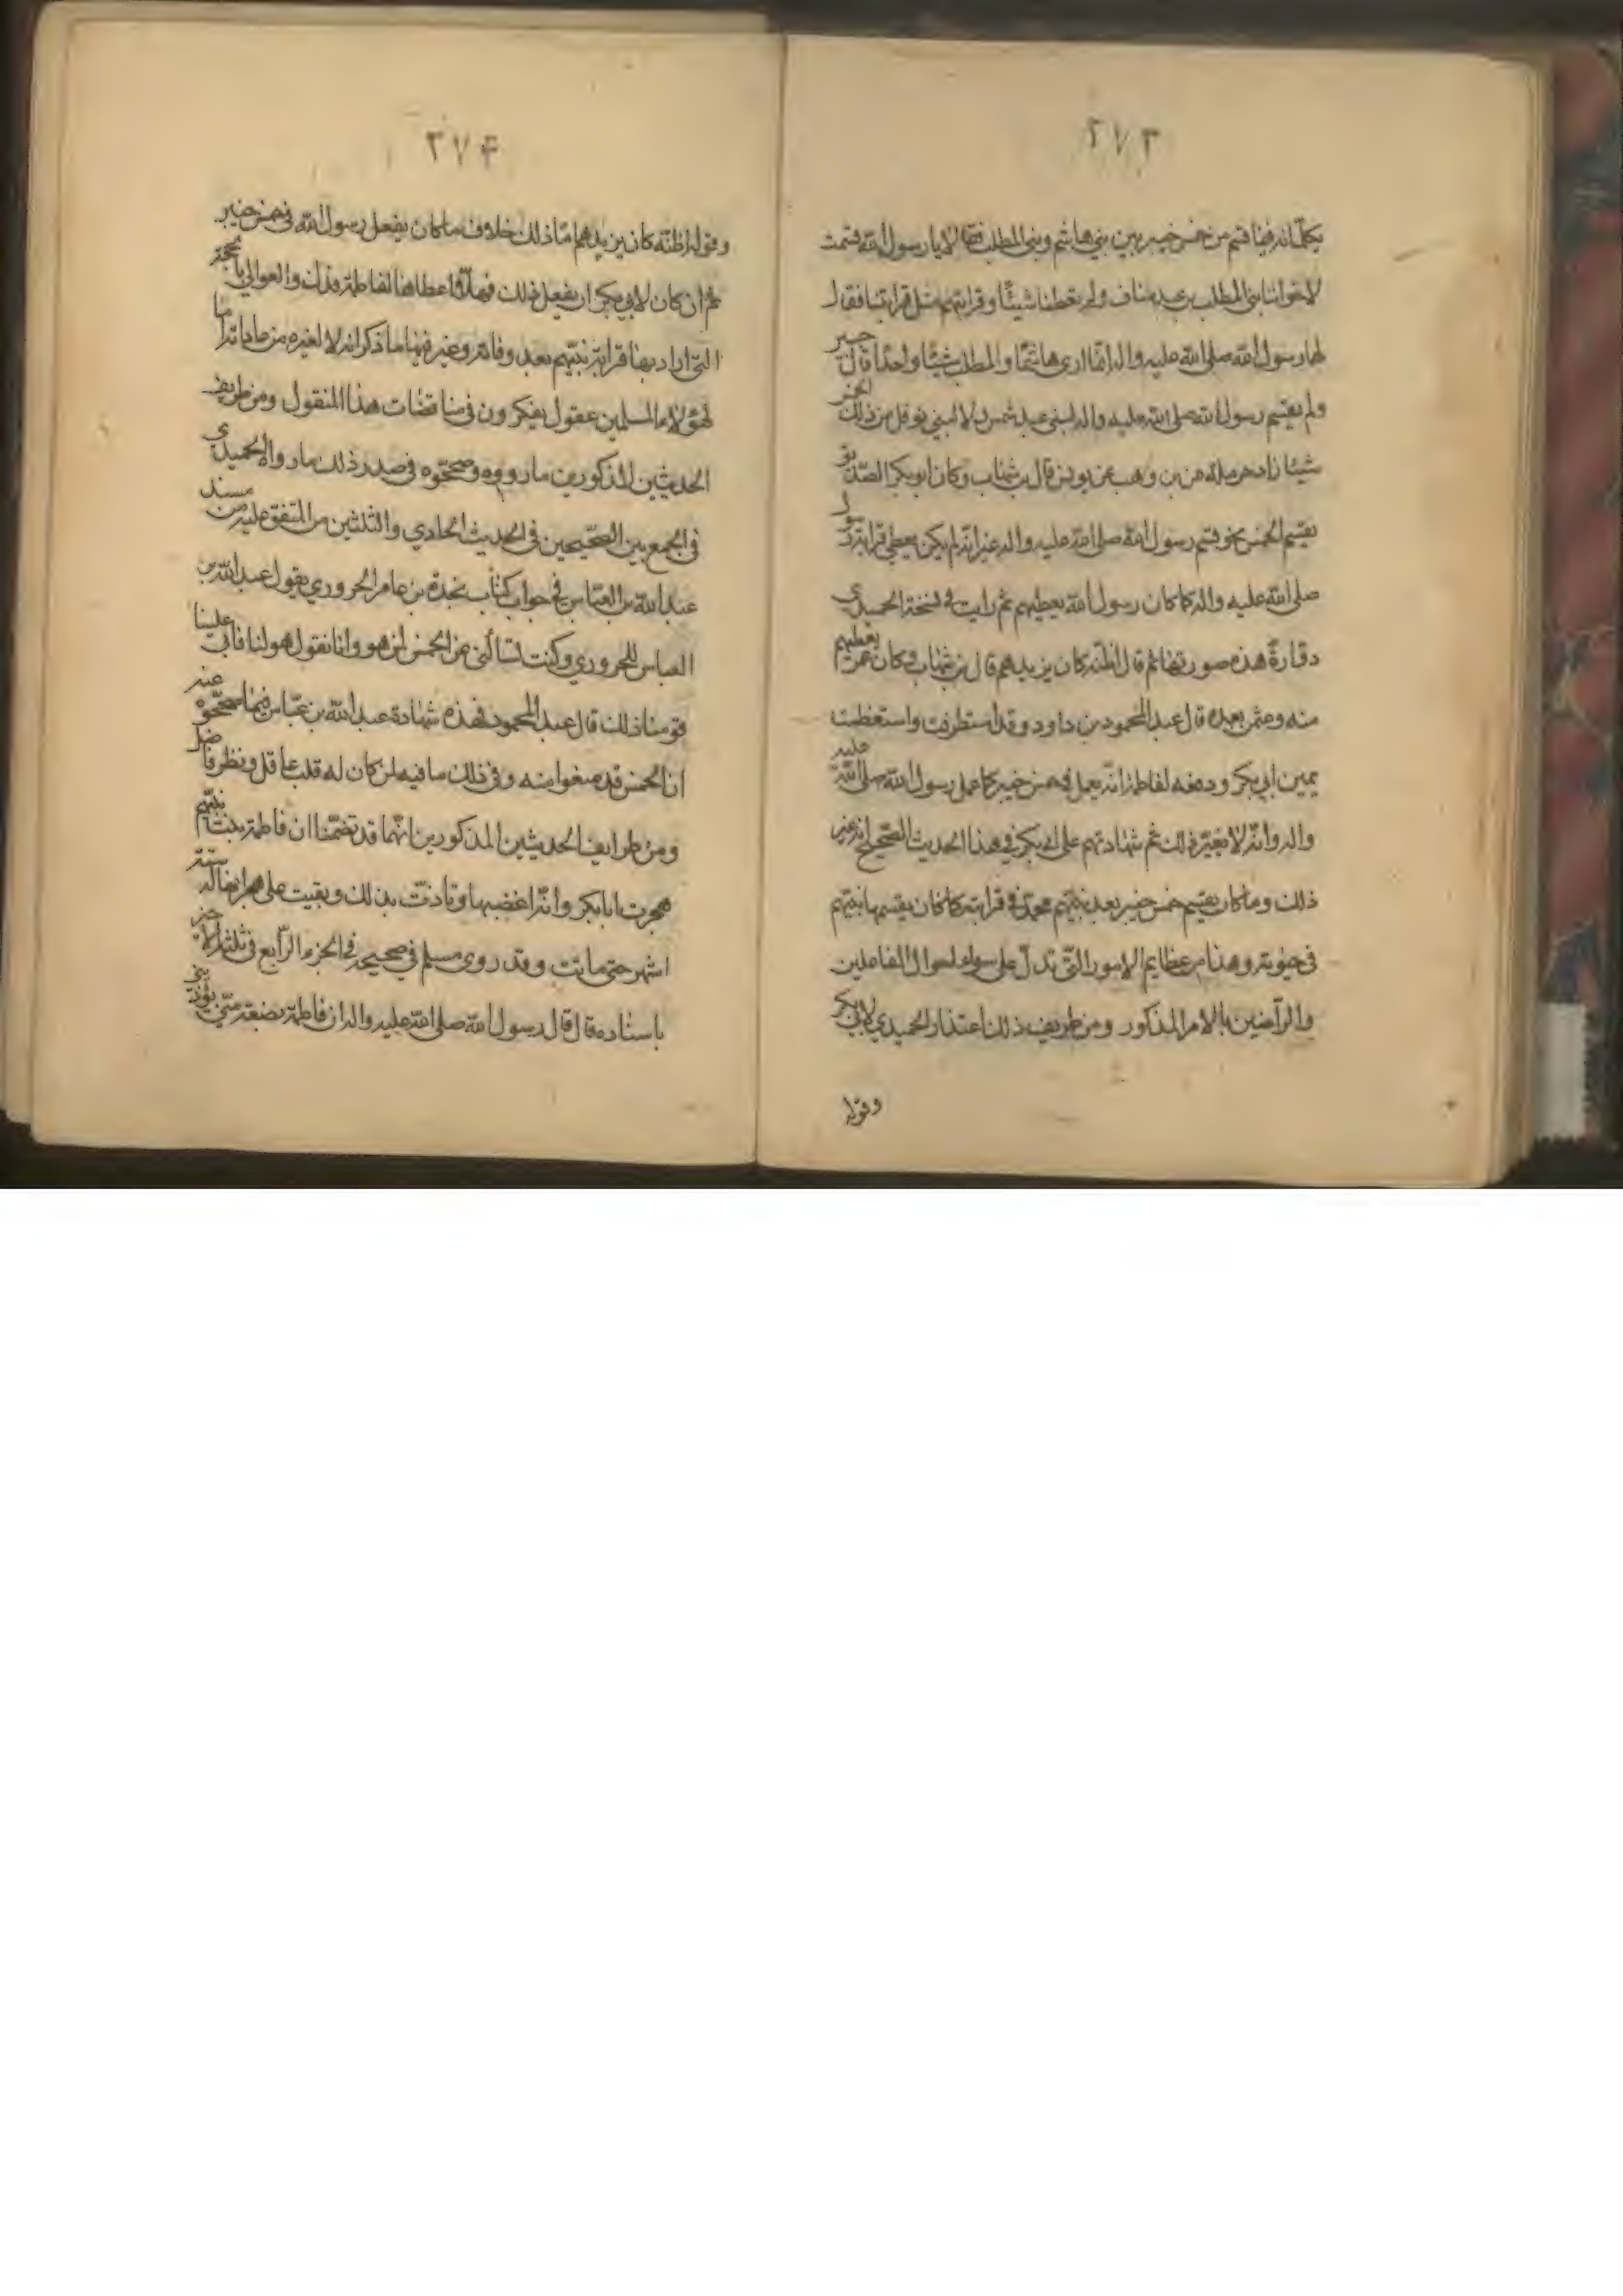 ٢٧٣
يكلمانه فيما قسم من خمس خيبر بين بني هاشم وبني المطلب فقالا يا رسول الله قسمت
لاخواننا بني المطلب بن عبد مناف ولم تعطنا شيئًا وقرابتهم مثل قرابتنا فقال
لهما رسول الله صلى الله عليه واله انما ارى هاشمًا والمطلب شيئًا واحدًا قال جبير
ولم يقسم رسول الله صلى الله عليه واله لبني عبد شمس ولا لبني نوفل من ذلك الخمس
شيئا زاد حرملة عن بن وهب عن يونس قال بن شهاب وكان ابو بكر الصديق
يقسم الخمس نحو قسم رسول الله صلى الله عليه واله غير انه لم يكن يعطي قرابة رسول
صلى الله عليه واله كما كان رسول الله يعطيهم ثم رايت في نسخة الحميدي
هذه صورتها ثم قال اظنه كان يزيدهم قال بن شهاب وكان عمر يعطيهم
منه وعثمن بعده قال عبد المحمود بن داود وقد استطرفت واستعظمت
يمين ابي بكر ودفعه لفاطمة انه يعمل في خمس خيبر كما عمل رسول الله صلى الله عليه
واله وانه لا يغير ذلك ثم شهادتهم على ابي بكر في هذا الحديث الصحيح انه غير
ذلك وما كان يقسم خمس خيبر بعد نبيهم محمد في قرابته كما كان يقسمها نبيهم
في حيوته وهذا من عظايم الامور التي تدل على سواء احوال الفاعلين
والراضين بالامر المذكور ومن طريف ذلك اعتذار الحميدي لابي بكر
وقوله
٢٧٤
وقوله اظنه كان يزيدهم اما ذلك خلاف ما كان يفعل رسول الله في خمس خيبر
ثم ان كان لابي بكر ان يفعل ذلك فهلا اعطاها لفاطمة فدك والعوالي بالحجة
التي اراد بها قرابة نبيهم بعد وفاته وغير فيها ما ذكر انه لا لغيره من عاداته اما
لهؤلاء المسلمين عقول يفكرون في مناقضات هذا المنقول ومن طريف
الحديثين المذكورين ما رووه وصححوه في صدر ذلك ما رواه الحميدي
في الجمع بين الصحيحين في الحديث الحادي والثلثين من المتفق عليه من مسند
عبد الله بن العباس في جواب كتاب نجدة بن عامر الحروري يقول عبد الله بن
العباس للحروري وكنت تسألني عن الخمس لمن هو وانا نقول هو لنا فابى علينا
قومنا ذلك قال عبد المحمود فهذه شهادة عبد الله بن عباس فيما صححوه عنه
ان الخمس قد منعوا منه وفي ذلك ما فيه لمن كان له قلب عاقل ونظر فاضل
ومن طرايف الحديثين المذكورين انهما قد تضمنا ان فاطمة بنت نبيهم
هجرت ابا بكر وانه اغضبها وتاذت بذلك وبقيت على هجرانها له ستة
اشهر حتى ماتت وقد روى مسلم في صحيحه في الجزء الرابع في ثلثه الاخير
باسناده قال قال رسول الله صلى الله عليه واله ان فاطمة بضعة مني يؤذيني